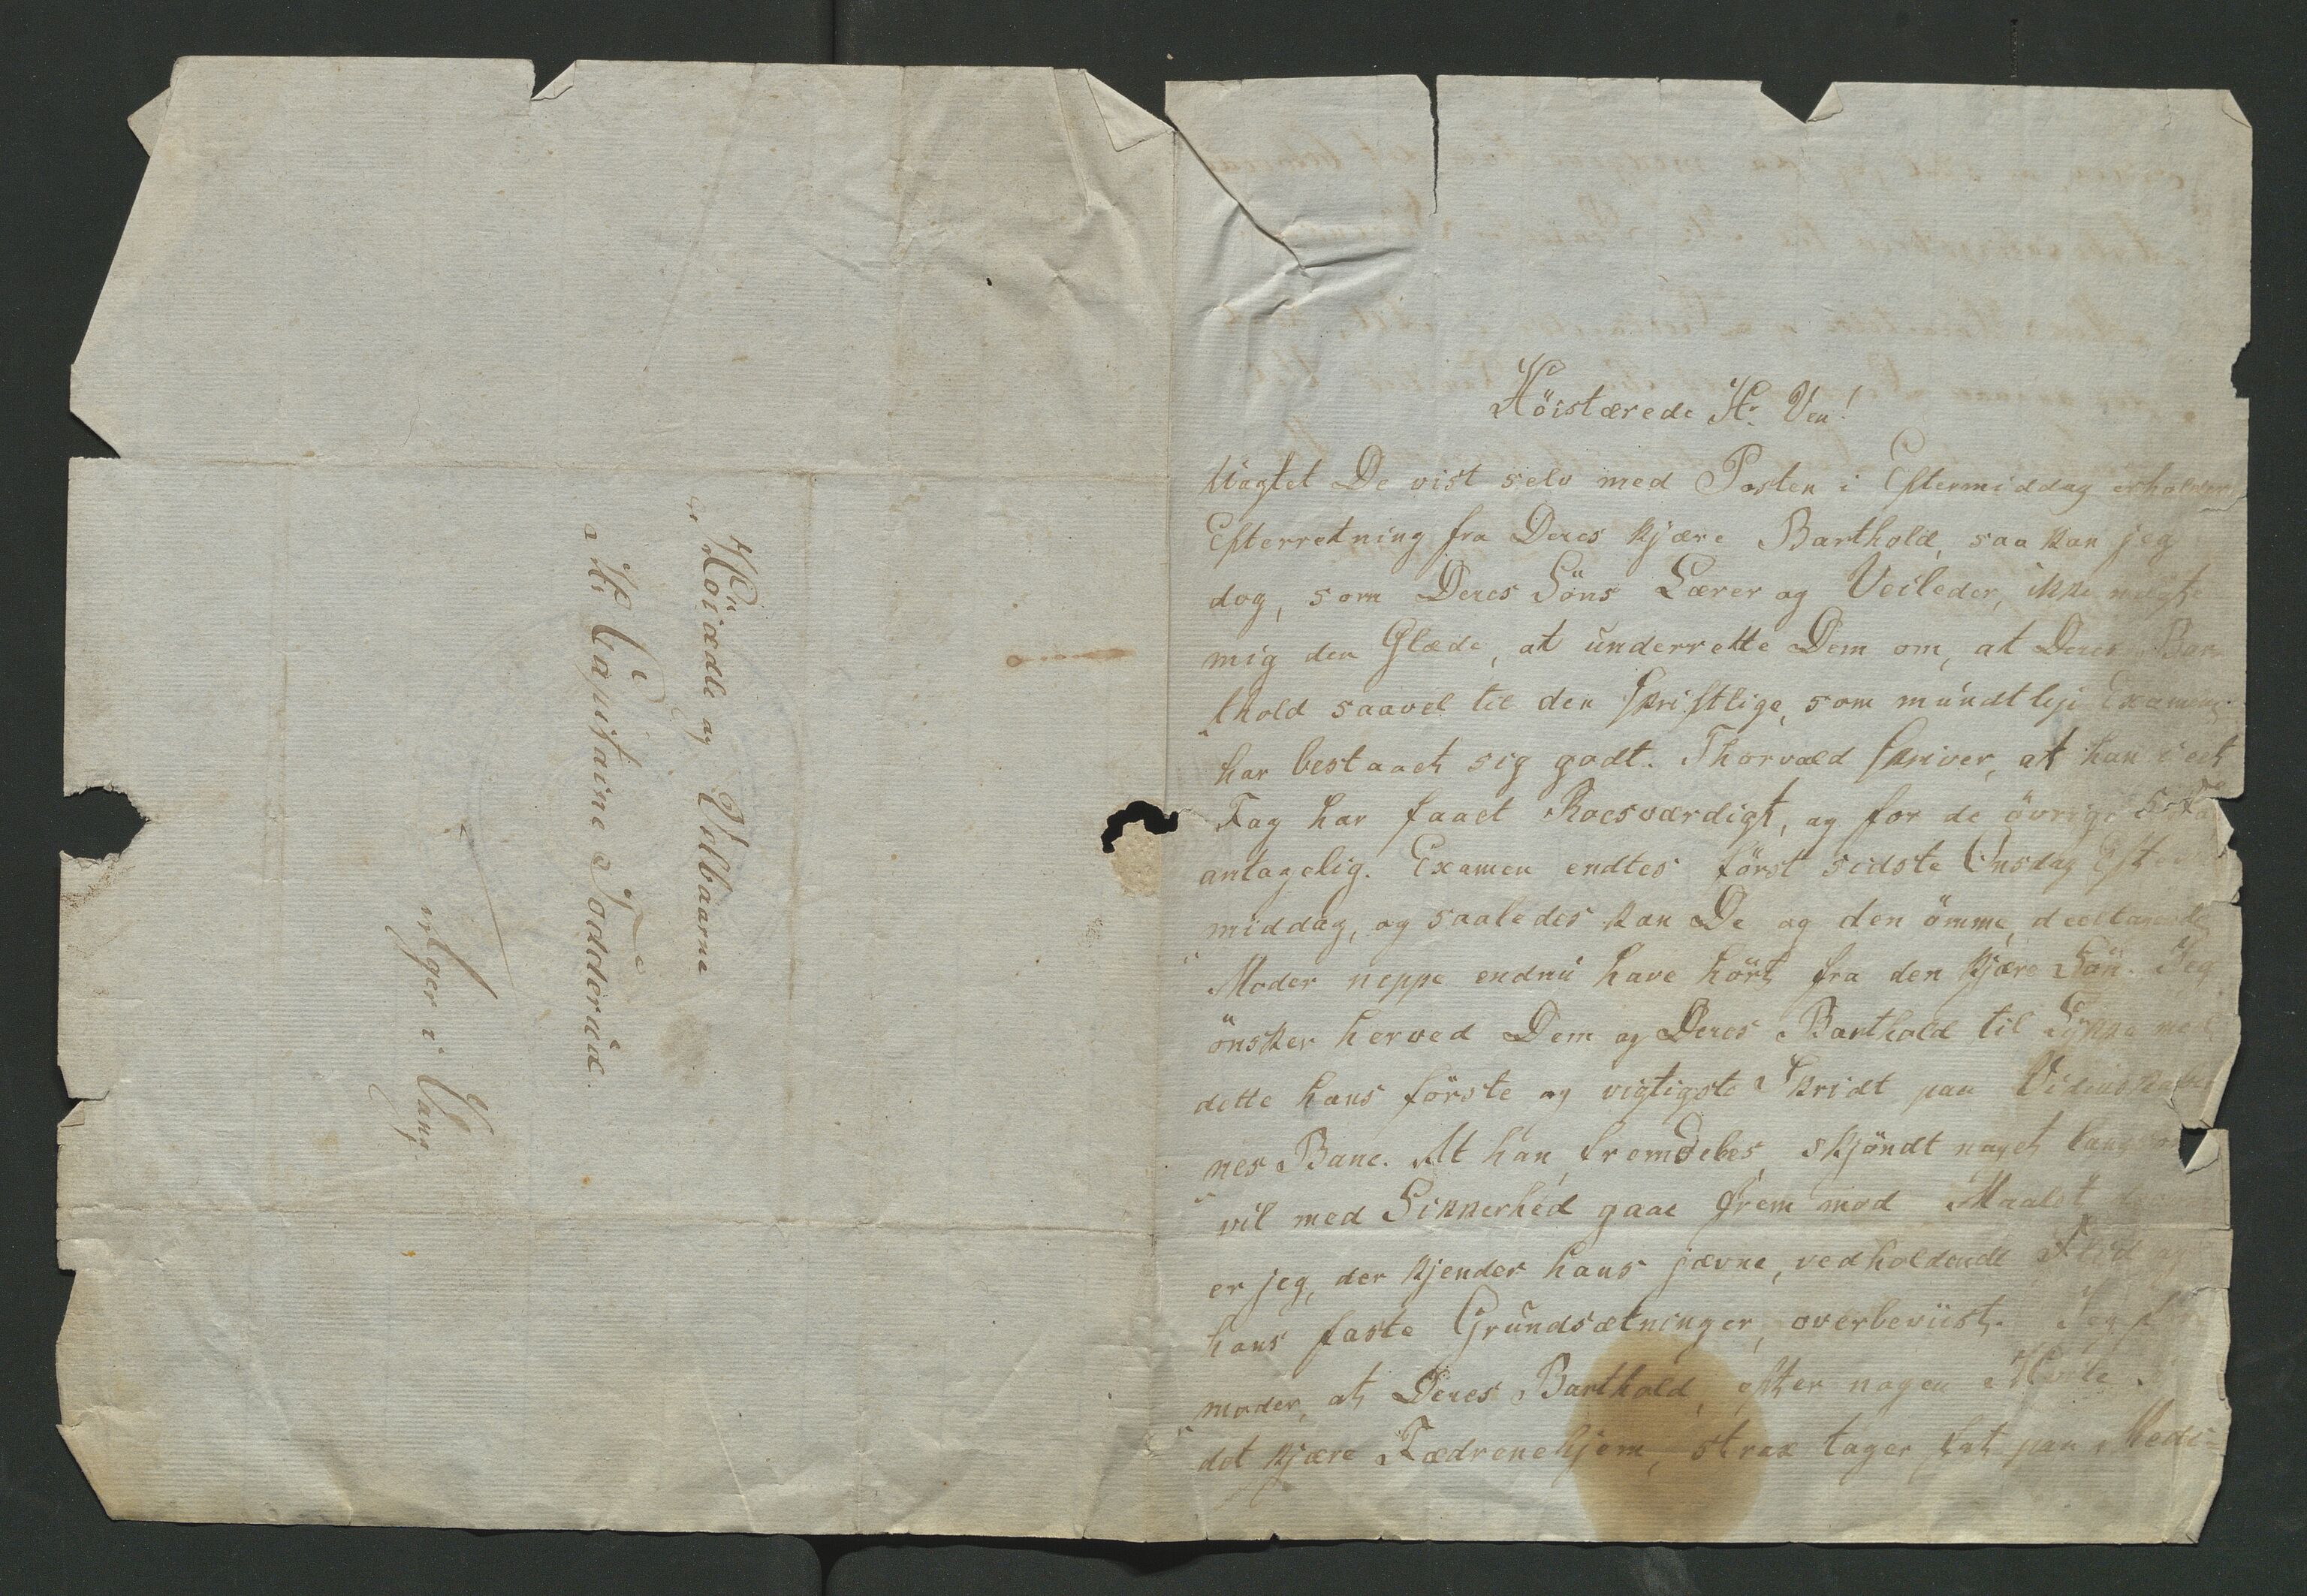 Höiædle og Velbaarne
Hr. Capitaine Todderud.
Ager i Vang.
Höistærede Hr. Ven!
Uagtet De vist selv med Posten i Eftermiddag erholder
Efterretning fra Deres kjære Barthold, saa kan jeg
dog, som Deres Söns Lærer og Veileder, ikke negte
mig den Glæde, at underrette Dem om, at Deres Bar-
thold saavel til den skriftlige, som mundtlige Examen
har bestaaet sig godt. Thorvald skriver, at han i eet
Fag har faaet Roesværdigt, og for de övrige
antagelig. Examen endtes först sidste Onsdag Efter
middag, og saaledes kan De og den ömme, deeltagende
Moder neppe endnu have hört fra den kjære Sön. Jeg
önsker herved Dem og Deres Barthold til Lykke med
dette hans förste og vigtigste Skridt paa Videnskaber
nes Bane. At han fremdeles, skjöndt noget langsom
vil med Sikkerhed gaae frem mod Maalet
er jeg, der kjender hans jævne, vedholdende Flid og
hans faste Grundsætninger, overbeviist. Jeg
moder, at Deres Barthold, efter nogen Hvile i
det kjære Fædrenehjem, strax tager fat paa Medi-